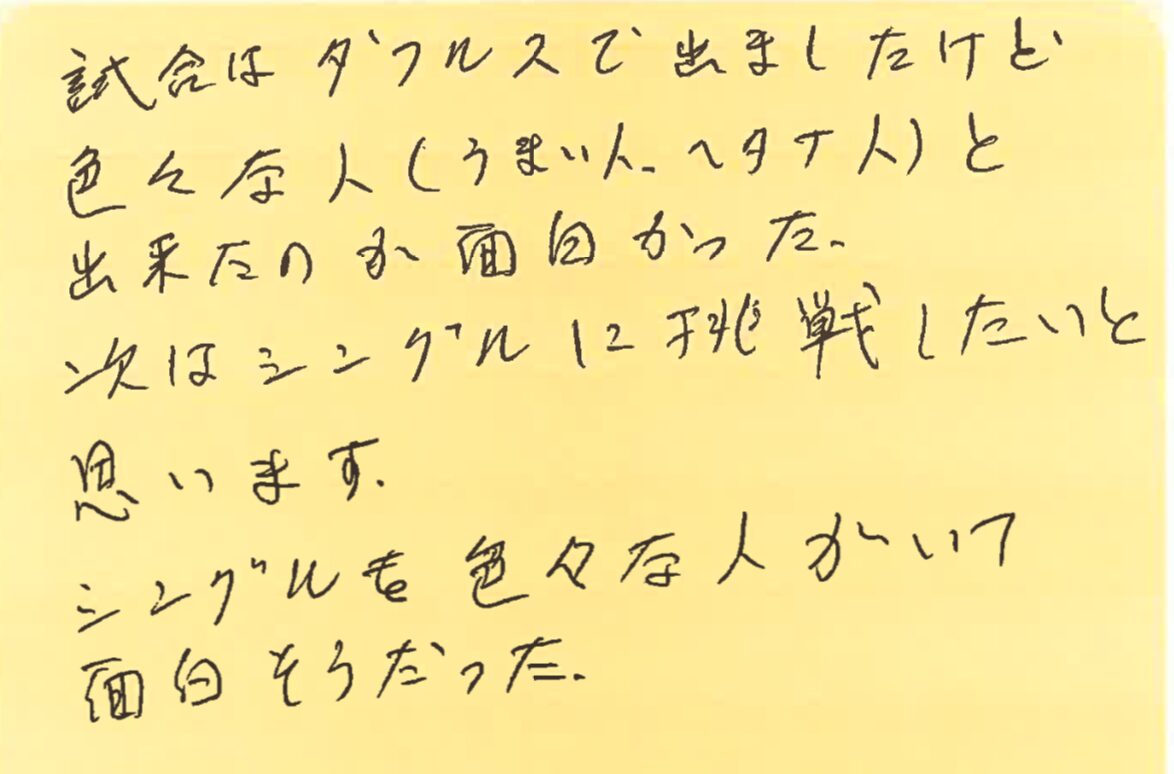 試合はダブルスで出ましたけど
色々な人(うまい人、ヘタナ人)と
出来たのが面白かった。
次はシングルに挑戦したいと
思います。
シングルも色々な人がいて
面白そうだった。